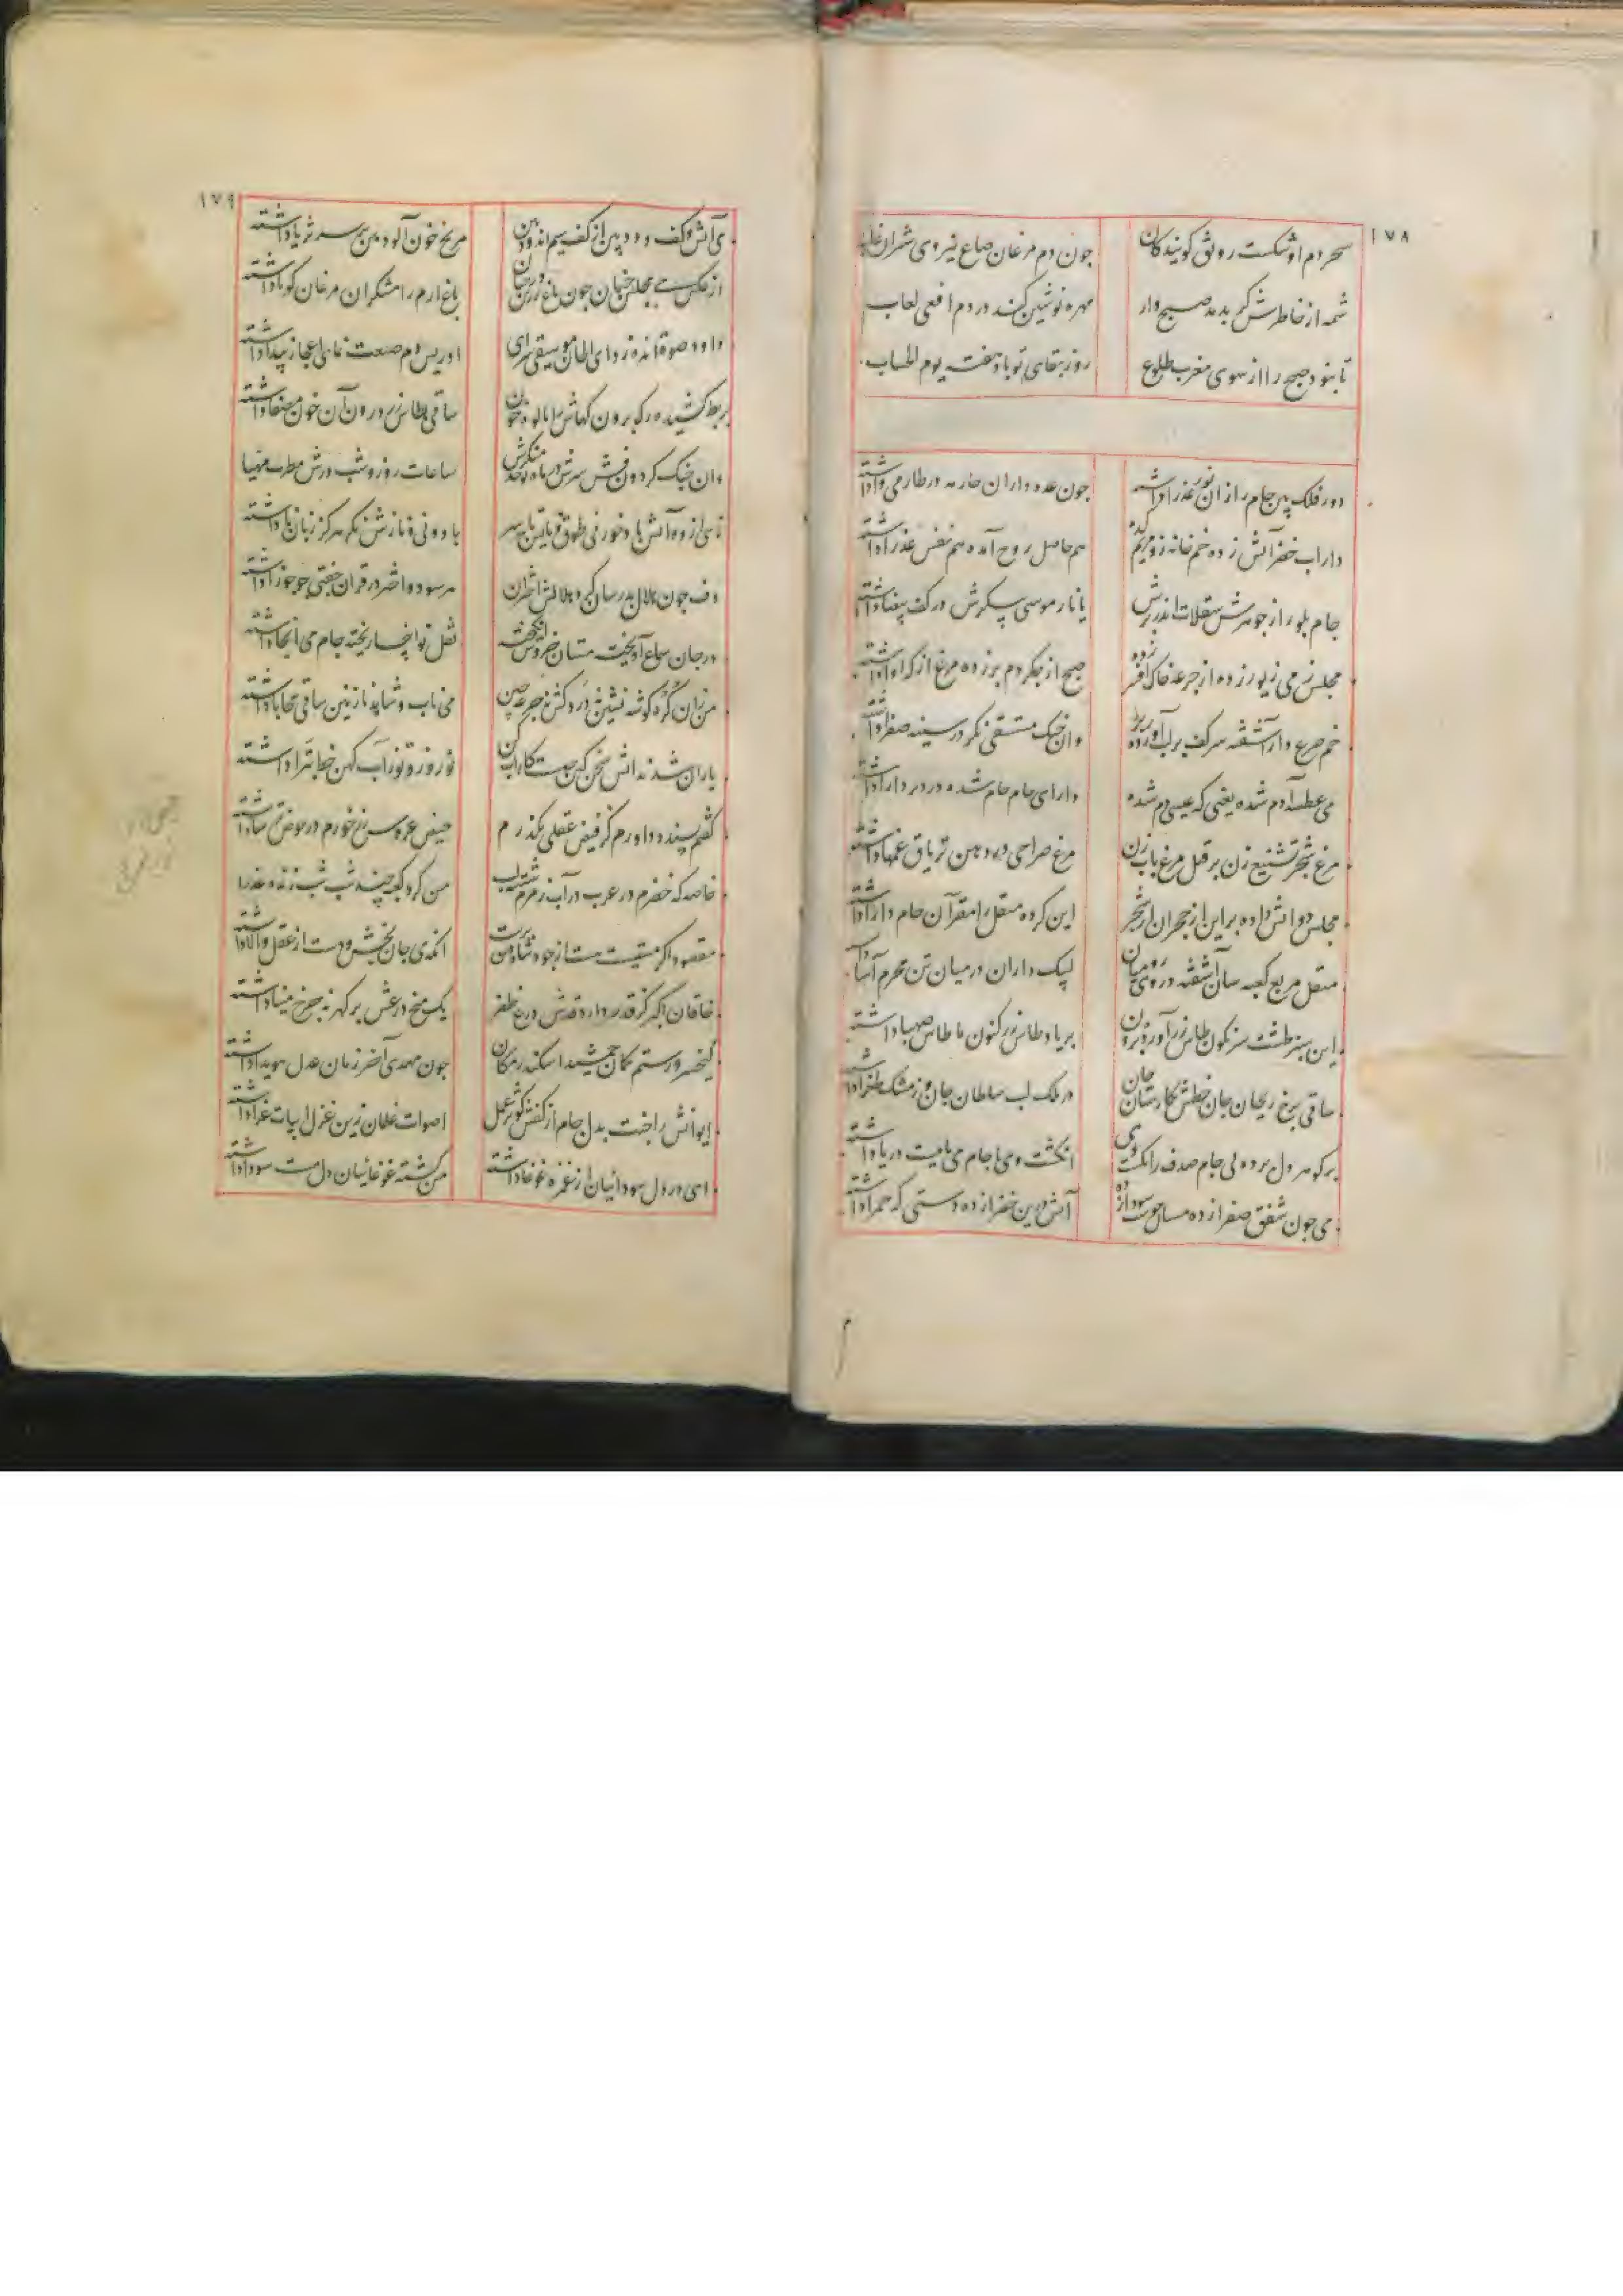 ١٧٨
سحر دم او شکست رونق کویندکان
جون دم مرغان صباع نیروی شیران غاب
شمه از خاطرش کر بدمد صبح وار
مهره نوشین کند در دم افعی لعاب
تا نبود صبح را از سوی مغرب طلوع
روز بقای تو باد هفت یوم الحساب
دور فلک بین جام را زان نور عذرا داشته
جون عده داران جارمه در طارمی وا داشته
داراب خضر آتش زده خمخانه زو مریم کده
هم حامل روح آمده هم نفس عذرا داشته
جام بلور از جوهرش سقلات اندر برش
یا نار موسی پیکرش در کف بیضا داشته
مجلس ز می زیور زده از جرعه خاک افسر زده
صبح از جکر دم بر زده مرغ از کر آوا داشته
خم صرع دار آشفته سر کف بر لب آورده زبر
وان خیک مستسقی نکر در سینه صفرا داشته
می عطسه آدم شده یعنی که عیسی دم شده
دارای جام جام شده در دیر دارا داشته
مرغ سحر تشنیع زن بر قتل مرغ باب زن
مرغ صراحی در دهن تریاق غمها داشته
مجلس دو آتش داده بر این از حجر آن از شجر
این کرده منقل را مقر آن جام را جا داشته
منقل مربع کعبه سان آشفته در وی رومیان
لبیک داران در میان تن محرم آسا داشته
این سبز طشت سرنکون طاس زر آورده برون
بر یاد طاس زر کنون ما طاس صهبا داشته
ساقی برخ ریحان جان خطش نکارستان جان
در ملک لب سلطان جان وز مشک طغرا داشته
بر کوهر دل برده پی جام صدف را نکته وی
انکشت وی با جام می ماهیت دریا داشته
می جون شفق صفرا زده مستان جو شب سودا زده
آتش درین خضرا زده دستی که حمرا داشته
١٧٩
می آتش و کف دود بین از کف سیم اندود بین
مریخ خون آلود بین بر سر ثریا داشته
از عکس می مجلس جنان جون باغ زرین خزان
باغ ارم رامشکران مرغان کویا داشته
داود صوت اندوز وای الحان موسیقی سرای
ادریس دم صنعت نمای اعجاز پیدا داشته
بربط کشیده رک برون رکهاش پالوده خون
ساقی بطاس زر درون آن خون مصفا داشته
وان جنک کردون فش سرش ده ماه نو خدمتکرش
ساعات روز و شب درش مطرب مهیا داشته
نای از دو آتش باد خور نی طوق و نی تاجش بسر
باد و نی و نازش نکر هر کز زبان نا داشته
دف جون هلال بدر سان کرد هلالش اختران
هر سو دو اختر در قران جفتی جو جوزا داشته
در جان سماع آویخته مستان خروش انکیخته
نقل نوا جا ریخته جام می آنجا داشته
من زان کره کوشه نشین دردکش نی جرعه چین
می ناب و شاهد نازنین ساقی محابا داشته
یاران شده آتش سخن کین جیست کار آب کن
نوروز نو زاب کهن خط تبرا داشته
کفتم پسندد داورم کز فیض عقلی بکذرم
حیض عروس رز خورم در حوض ترسا داشته
خاصه که خضرم در عرب در آب زمزم شسته لب
من کرد کعبه چند شب شب زنده و عذرا
مقصود اکر مستیت هست از جود شاه دین پرست
آنک می جان بخش و دست از عقل والا داشته
خاقان اکبر کز قدر دارد قدش درع ظفر
یک میخ درعش بر کمر نه جرخ مینا داشته
کیخسرو رستم کمان جمشید اسکندر مکان
جون مهدی آخر زمان عدل هویدا داشته
ایوانش را جنت بدل جام از کفش کوثر عمل
اصوات غلمان زین غزل ابیات غرا داشته
ای در دل سودائیان از غمزه غوغا داشته
من کشته غوغائیان دل مست سودا داشته